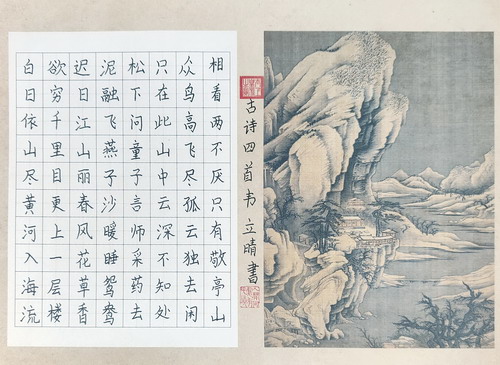 白日依山尽黄河入海流
欲穷千里目更上一层楼
迟日江山丽春风花草香
泥融飞燕子沙暖睡鸳鸯
松下问童子言师采药去
只在此山中云深不知处
众鸟高飞尽孤云独去闲
相看两不厌只有敬亭山
古诗四首韦立晴書